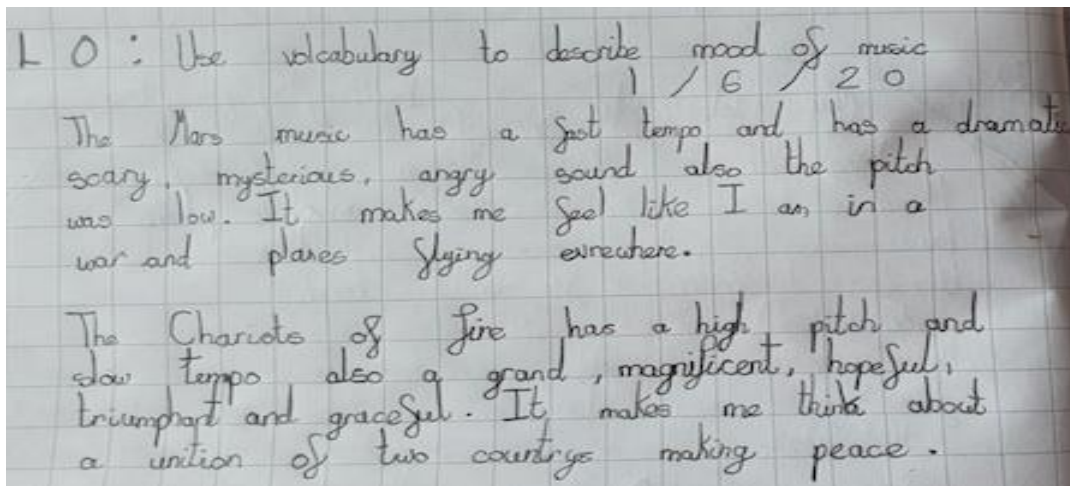 L O : Use volcabulary to describe mood of music
1 / 6 / 20
The Mars music has a fast tempo and has a dramatic
scary, mysterious, angry sound also the pitch
was low. It makes me feel like I am in a
war and planes flying evrewhere.
The Chariots of fire has a high pitch and
slow tempo also a grand, magnificent, hopeful,
triumphant and graceful. It makes me think about
a unition of two countrys making peace.